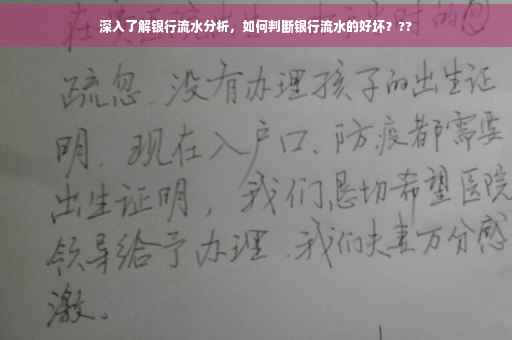 深入了解银行流水分析，如何判断银行流水的好坏？??
疏忽、没有办理孩子的出生证
明、现在入户口、防疫都需要
出生证明，我们恳切希望医院
领导给予办理、我们夫妻万分感
激。